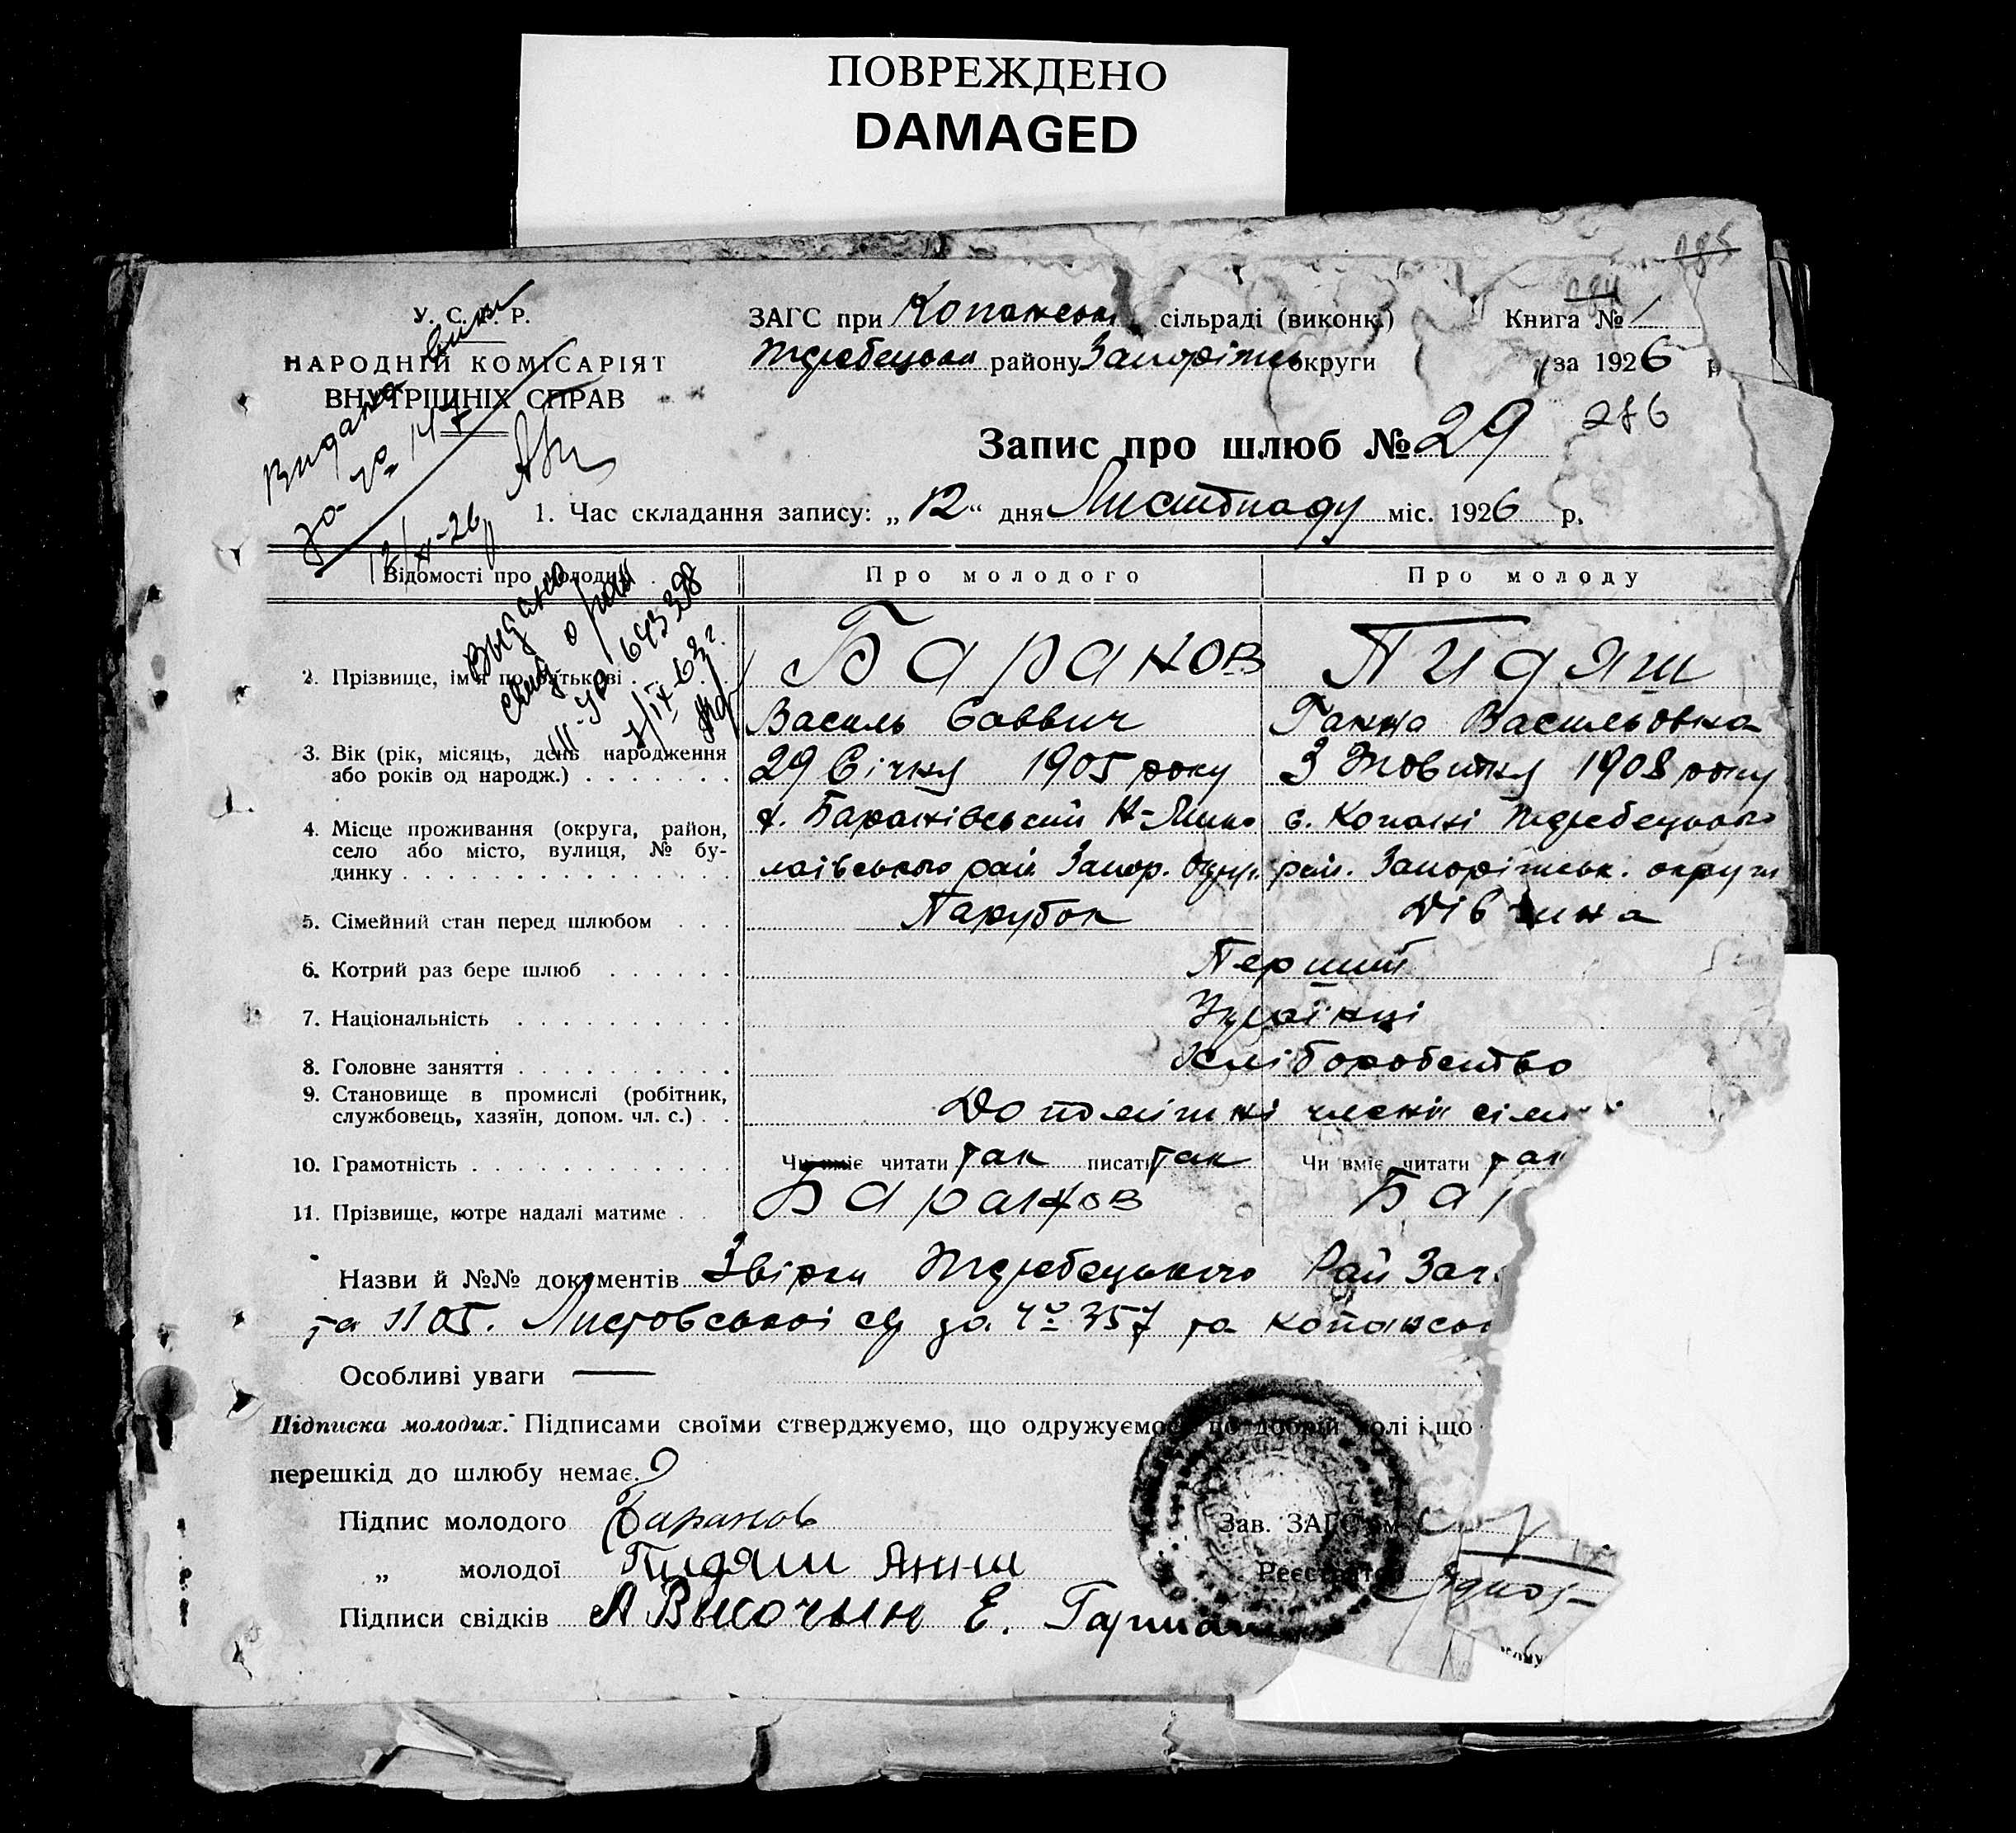 ПОВРЕЖДЕНО
DAMAGED
285
284
У. С. Р. Р.
НАРОДНІЙ КОМІСАРІЯТ
ВНУТРІШНІХ СПРАВ
Видана
за № 147
12/XI-26
ЗАГС при Копанськ сільраді (виконк.)
Жеребецьки району Запоріжс округи
Книга № 1
за 1926 р
286
Запис про шлюб № 29
1. Час складання запису: „12“ дня Листопаду міс. 1926 р.
Відомості про молодих
Про молодого
Про молоду
Выдано
свид о
III-УР 643398
7/IX-63г.
2. Прізвище, ім'я по батькові
Баранов
Василь Саввич
Пидяш
Ганна Васильовна
3. Вік (рік, місяць, день народження або років од народж.)
29 Січня 1905 року
3 Жовтня 1908 року
4. Місце проживання (округа, район, село або місто, вулиця, № будинку
х. Баранівський Н-Мико
лаївського рай Запор. Округ.
с. Копані Жеребецького
рай. Запоріжськ. округи
5. Сімейний стан перед шлюбом
Парубок
Дівчина
6. Котрий раз бере шлюб
Перший
7. Національність
Українці
8. Головне заняття
Хліборобство
9. Становище в промислі (робітник, службовець, хазяїн, допом. чл. с.)
Допоміжні члени сім
10. Грамотність
Чи вміє читати так писат так
Чи вміє читати так
11. Прізвище, котре надалі матиме
Баранов
Бар
Назви й №№ документів Звірки Жеребецького Рай Заг
та 1105. Листовської с/р за № 357 та Копансь
Особливі уваги —
Підписка молодих. Підписами своїми стверджуємо, що одружуємось по добрій волі і що
перешкід до шлюбу немає.
Підпис молодого Баранов
„ молодої Пидяш Анни
Підписи свідків А Высочын Е.
Зав. ЗАГС'ом
Реєстратор